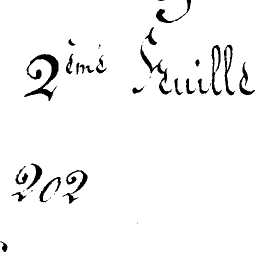 2ème Feuille
202